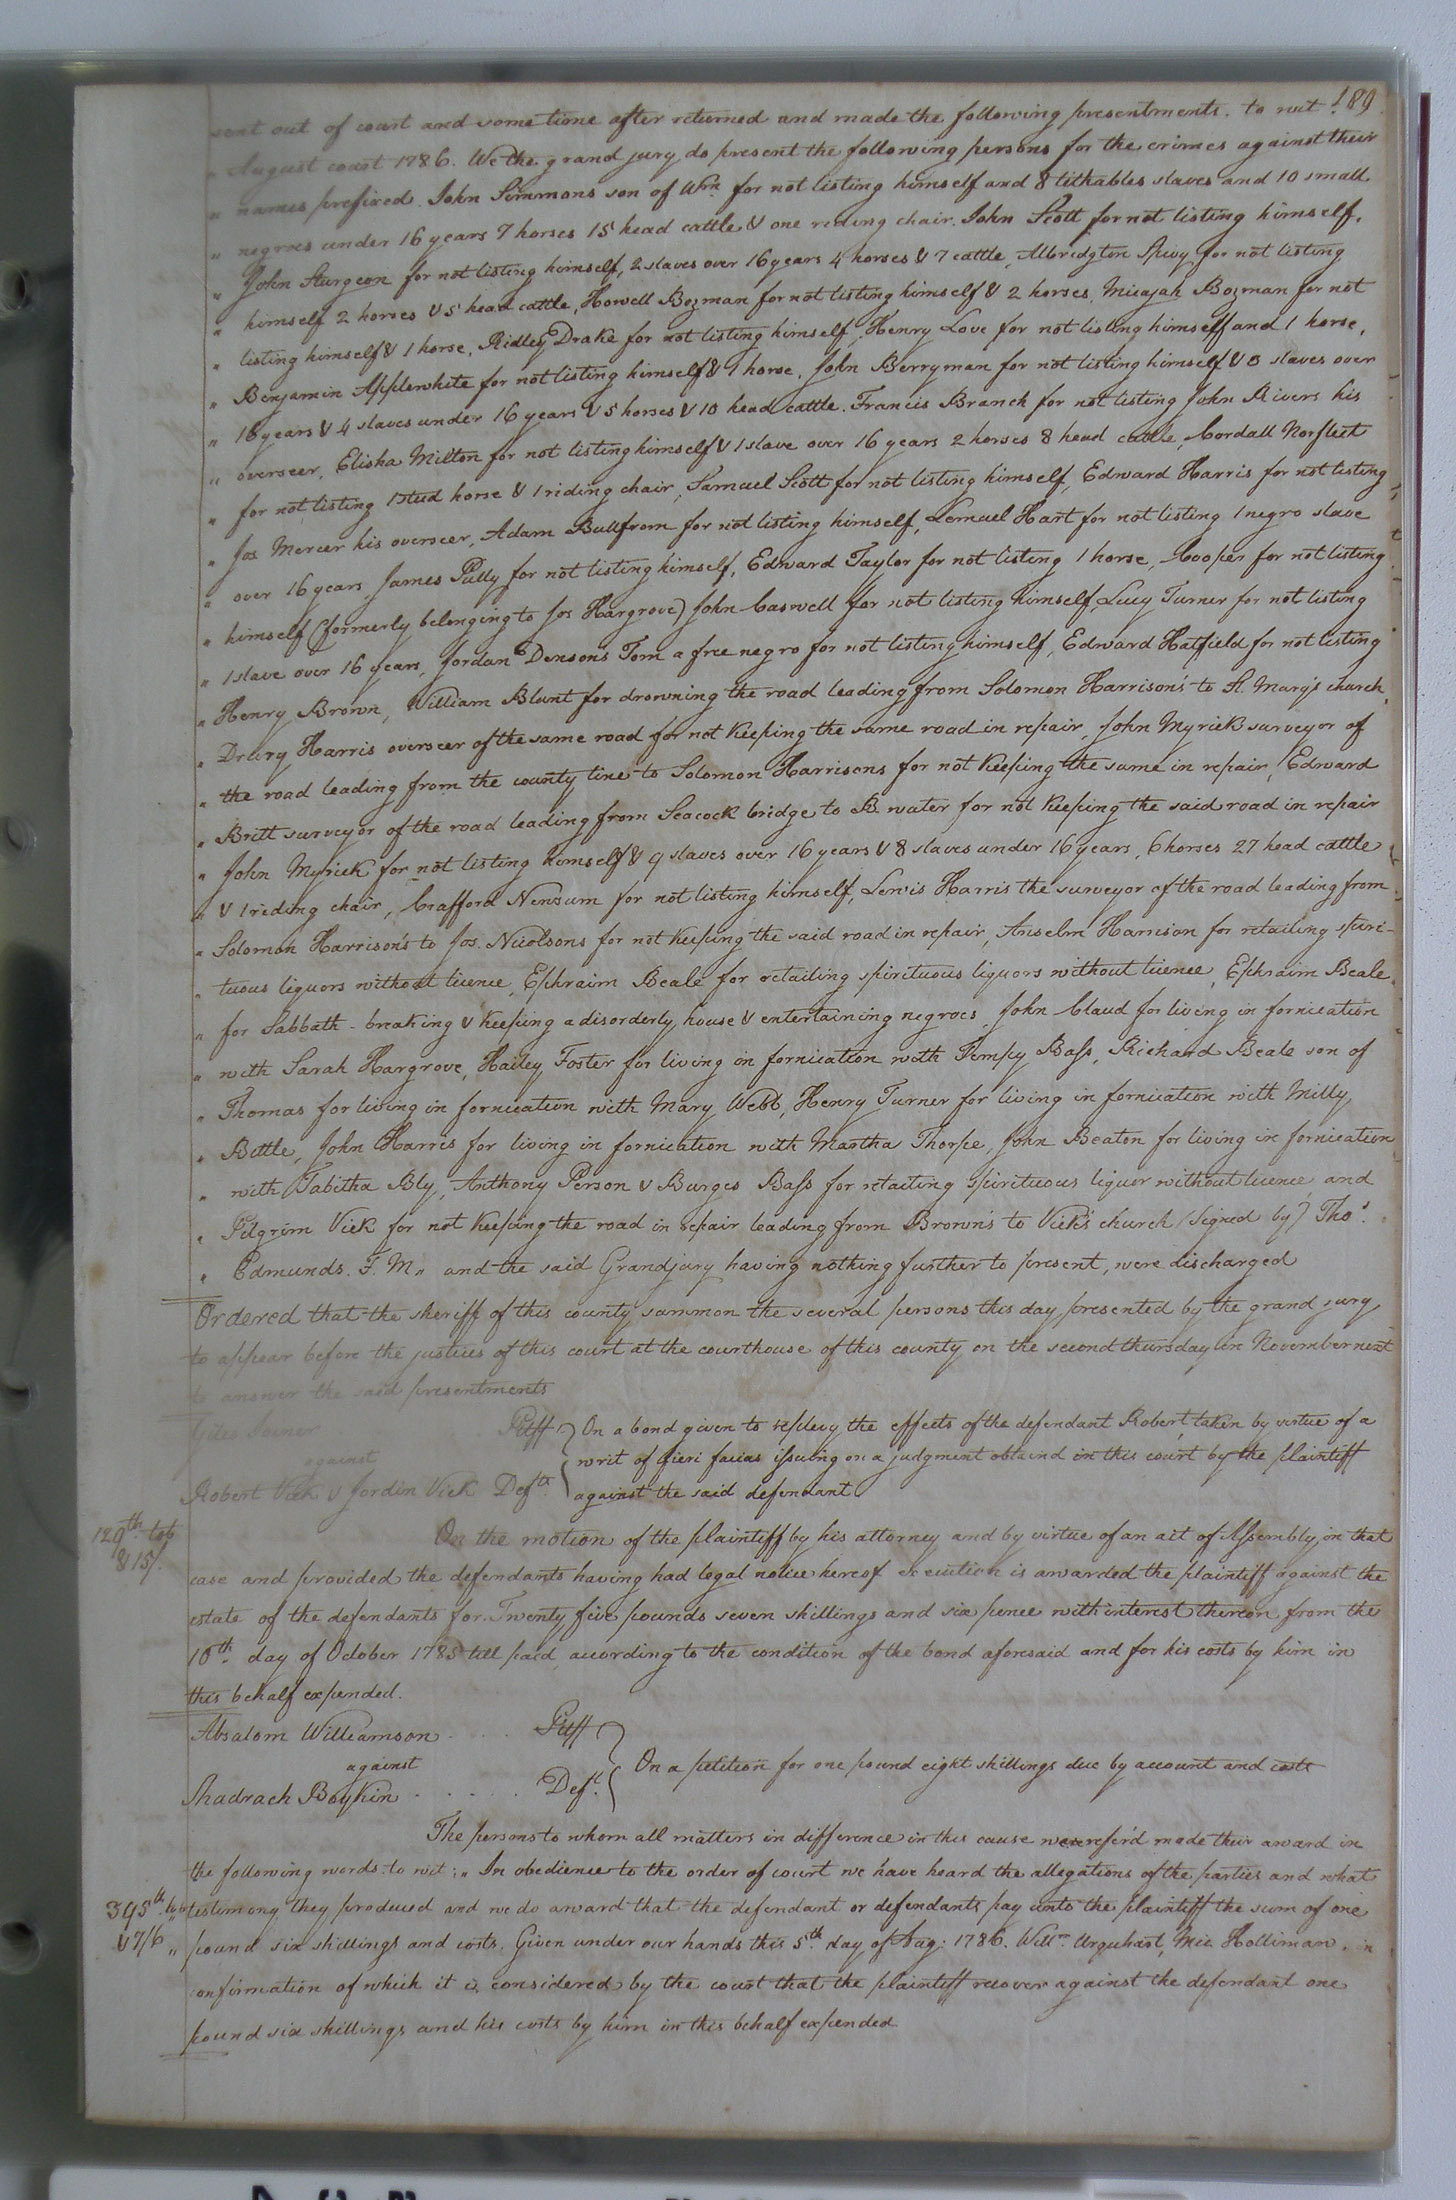 189
sent out of court and some time after returned and made the following presentments. to wit
" August court 1786. We the grand jury do present the following persons for the crimes against their
" names prefixed. John Simmons son of Wm. for not listing himself and 8 tithables slaves and 10 small
" negroes under 16 years 7 horses 15 head cattle & one riding chair. John Scott for not listing himself.
" John Sturgeon for not listing himself, 2 slaves over 16 years 4 horses & 7 cattle, Albridgton Spivy for not listing
" himself 2 horses & 5 head cattle, Howell Bozman for not listing himself & 2 horses, Micajah Bozman for not
" listing himself & 1 horse, Ridley Drake for not listing himself, Henry Love for not listing himself and 1 horse,
" Benjamin Applewhite for not listing himself & 1 horse, John Berryman for not listing himself & 8 slaves over
" 16 years & 4 slaves under 16 years & 5 horses & 10 head cattle. Francis Branch for not listing John Rivers his
" overseer, Elisha Milton for not listing himself & 1 slave over 16 years 2 horses 8 head cattle, Cordall Norfleet
" for not listing 1 stud horse & 1 riding chair, Samuel Scott for not listing himself, Edward Harris for not listing
" Jos Mercer his overseer, Adam Bullfrom for not listing himself, Lemuel Hart for not listing 1 negro slave
" over 16 years, James Pully for not listing himself, Edward Taylor for not listing 1 horse, Cooper for not listing
" himself (formerly belonging to Jos Hargrove) John Caswell for not listing himself Lucy Turner for not listing
" 1 slave over 16 years, Jordan Denson's Tom a free negro for not listing himself, Edward Hatfield for not listing
" Henry Brown, William Blunt for drowning the road leading from Solomon Harrison's to St. Mary's church,
" Drury Harris overseer of the same road for not keeping the same road in repair, John Myrick surveyor of
" the road leading from the county line to Solomon Harrisons for not keeping the same in repair, Edward
" Britt surveyor of the road leading from Seacock bridge to B. water for not keeping the said road in repair
" John Myrick for not listing himself & 9 slaves over 16 years & 8 slaves under 16 years, 6 horses 27 head cattle
" & 1 riding chair, Crafford Newsum for not listing himself, Lewis Harris the surveyor of the road leading from
" Solomon Harrison's to Jos. Nicolsons for not keeping the said road in repair, Anselm Harrison for retailing spiri-
" tuous liquors without licence, Ephraim Beale for retailing spirituous liquors without licence, Ephraim Beale
" for Sabbath-breaking & keeping a disorderly house & entertaining negroes, John Claud for living in fornication
" with Sarah Hargrove, Hailey Foster for living in fornication with Tempy Bass, Richard Beale son of
" Thomas for living in fornication with Mary Webb, Henry Turner for living in fornication with Milly
" Bittle, John Harris for living in fornication with Martha Thorpe, John Beaton for living in fornication
" with Tabitha Bly, Anthony Person & Burges Bass for retailing spirituous liquor without licence, and
" Pilgrim Vick for not keeping the road in repair leading from Brown's to Vick's church (signed by) Thos.
" Edmunds. F. M" and the said Grandjury having nothing further to present, were discharged
Ordered that the sheriff of this county summon the several persons this day presented by the grand jury
to appear before the justices of this court at the courthouse of this county on the second thursday in November next
to answer the said presentments
Giles Joiner Pltff } On a bond given to replevy the effects of the defendant Robert, taken by virtue of a
against writ of fieri facias issuing on a judgment obtaind in this court by the plaintiff
Robert Vick & Jordin Vick Defts. against the said defendant
120th tob On the motion of the plaintiff by his attorney and by virtue of an act of Assembly in that
& 15/. case and provided the defendants having had legal notice hereof execution is awarded the plaintiff against the
estate of the defendants for Twenty five pounds seven shillings and six pence with interest thereon from the
10th. day of October 1785 till paid, according to the condition of the bond aforesaid and for his costs by him in
this behalf expended.
Absalom Williamson .... Pltff
against } On a petition for one pound eight shillings due by account and costs
Shadrach Boykin ..... Deft.
The persons to whom all matters in difference in this cause were refer'd made their award in
the following words to wit: " In obedience to the order of court we have heard the allegations of the parties and what
395th. tob " testimony they produced and we do award that the defendant or defendants pay unto the plaintiff the sum of one
& 7/6 " pound six shillings and costs. Given under our hands this 5th. day of Aug. 1786. Willm. Urquhart, Mic. Holliman. in
confirmation of which it is considered by the court that the plaintiff recover against the defendant one
pound six shillings and his costs by him in this behalf expended